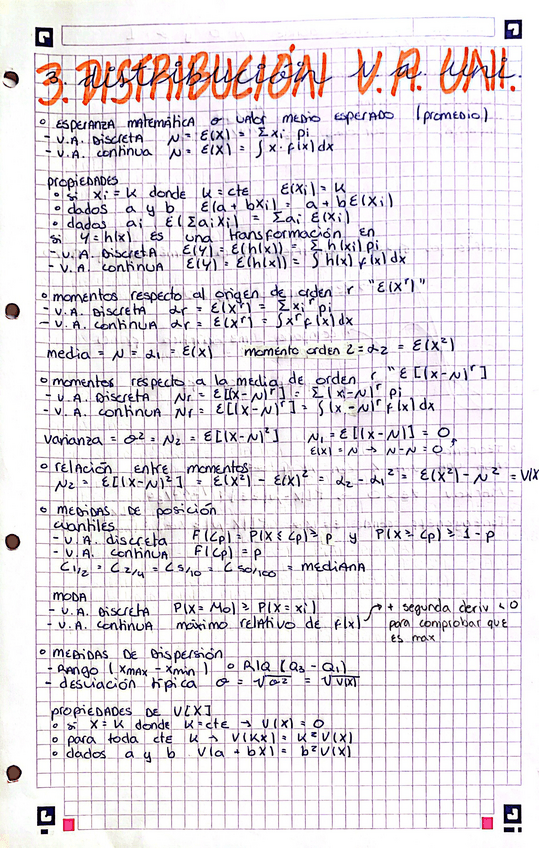 3. DISTRIBUCIÓN V.A. UNI.
3. distribución v.a. uni.
o ESPERANZA MATEMÁTICA o VALOR MEDIO ESPERADO (promedio)
- V.A. DISCRETA μ = E(X) = Σxi pi
- V.A. CONTINUA μ = E(X) = ∫x·f(x)dx
PROPIEDADES
o si xi = K donde K = cte E(Xi) = K
o dados a y b E(a + bXi) = a + bE(Xi)
o dados ai E(ΣaiXi) = Σai E(Xi)
si Y = h(x) ES UNA transformación en
- V.A. DISCRETA E(Y) = E(h(x)) = Σ h(xi) pi
- V.A. CONTINUA E(Y) = E(h(x)) = ∫h(x) f(x)dx
o momentos respecto al origen de orden r "E(X^r)"
- V.A. DISCRETA αr = E(X^r) = Σxi^r pi
- V.A. CONTINUA αr = E(X^r) = ∫x^r f(x)dx
media = μ = α1 = E(X) momento orden 2 = α2 = E(X²)
o momentos respecto a la media de orden r "E[(X-μ)^r]
- V.A. DISCRETA μr = E[(X-μ)^r] = Σ(xi-μ)^r pi
- V.A. CONTINUA μr = E[(X-μ)^r] = ∫(x-μ)^r f(x)dx
varianza = σ² = μ2 = E[(X-μ)²] μ1 = E[(X-μ)] = 0
E(X) = μ → μ-μ = 0
o relación entre momentos
μ2 = E[(X-μ)²] = E(X²) - E(X)² = α2 - α1² = E(X²) - μ² = V(X
o MEDIDAS DE POSICIÓN
cuantiles
- V.A. discreta F(Cp) = P(X ≤ Cp) ≥ p y P(X ≥ Cp) ≥ 1 - p
- V.A. continua F(Cp) = p
C1/2 = C2/4 = C5/10 = C50/100 = MEDIANA
MODA
- V.A. DISCRETA P(X = Mo) ≥ P(X = xi)
- V.A. CONTINUA máximo relativo de f(x)
→ + segunda deriv < 0
para comprobar que
es max
o MEDIDAS DE DISPERSIÓN
- RANGO (xmax - xmin) o RIQ (Q3 - Q1)
- desviación típica σ = √σ² = √V(X)
PROPIEDADES DE V[X]
o si X = K donde K = cte → V(X) = 0
o para toda cte K → V(KX) = K² V(X)
o dados a y b V(a + bX) = b² V(X)